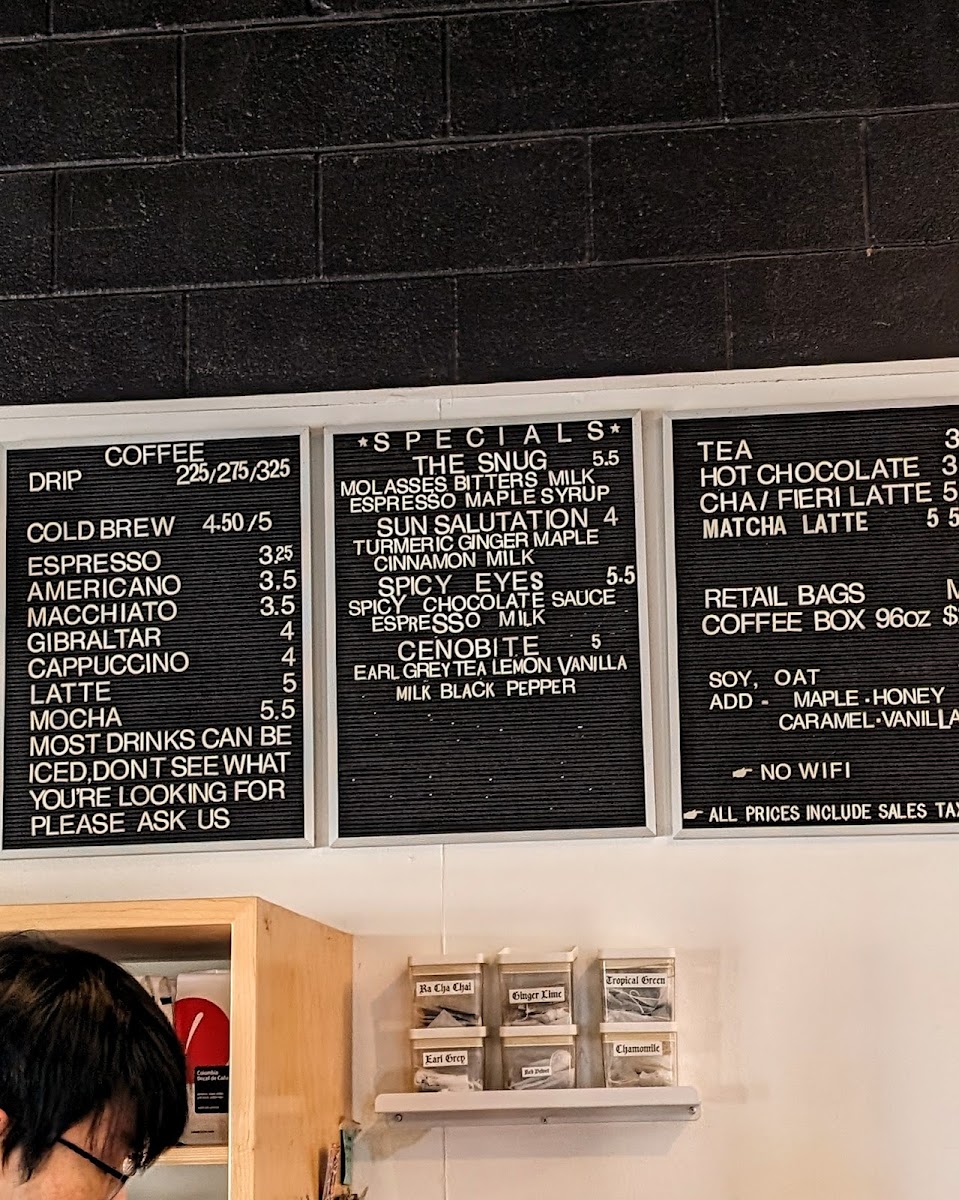 COFFEE
DRIP 225/275/325
COLD BREW 4.50/5
ESPRESSO 3.25
AMERICANO 3.5
MACCHIATO 3.5
GIBRALTAR 4
CAPPUCCINO 4
LATTE 5
MOCHA 5.5
MOST DRINKS CAN BE
ICED,DONT SEE WHAT
YOU'RE LOOKING FOR
PLEASE ASK US
*SPECIALS*
THE SNUG 5.5
MOLASSES BITTERS MILK
ESPRESSO MAPLE SYRUP
SUN SALUTATION 4
TURMERIC GINGER MAPLE
CINNAMON MILK
SPICY EYES 5.5
SPICY CHOCOLATE SAUCE
ESPRESSO MILK
CENOBITE 5
EARL GREY TEA LEMON VANILLA
MILK BLACK PEPPER
TEA 3
HOT CHOCOLATE 3
CHA / FIERI LATTE 5
MATCHA LATTE 5 5
RETAIL BAGS M
COFFEE BOX 96oz $
SOY, OAT
ADD - MAPLE·HONEY
CARAMEL·VANILLA
☛ NO WIFI
☛ ALL PRICES INCLUDE SALES TAX
Ra Cha Chai
Ginger Lime
Tropical Green
Earl Grey
Red Velvet
Chamomile
Colombia
Decaf de Caña